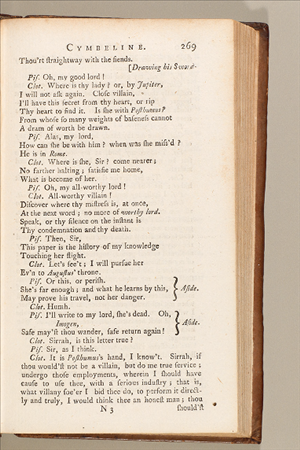 CYMBELINE. 269
Thou'rt ſtraightway with the fiends.
[Drawing his Sword.
Piſ. Oh, my good lord!
Clot. Where is thy lady? or, by Jupiter,
I will not aſk again. Cloſe villain,
I'll have this ſecret from thy heart, or rip
Thy heart to find it. Is ſhe with Poſthumus?
From whoſe ſo many weights of baſeneſs cannot
A dram of worth be drawn.
Piſ. Alas, my lord,
How can ſhe be with him? when was ſhe miſs'd?
He is in Rome.
Clot. Where is ſhe, Sir? come nearer;
No farther halting; ſatisfie me home,
What is become of her.
Piſ. Oh, my all-worthy lord!
Clot. All-worthy villain!
Diſcover where thy miſtreſs is, at once,
At the next word; no more of worthy lord.
Speak, or thy ſilence on the inſtant is
Thy condemnation and thy death.
Piſ. Then, Sir,
This paper is the hiſtory of my knowledge
Touching her flight.
Clot. Let's ſee't; I will purſue her
Ev'n to Auguſtus' throne.
Piſ. Or this, or periſh.
She's far enough; and what he learns by this, Aſide.
May prove his travel, not her danger.
Clot. Humh.
Piſ. I'll write to my lord, ſhe's dead. Oh,
Imogen, Aſide.
Safe may'ſt thou wander, ſafe return again!
Clot. Sirrah, is this letter true?
Piſ. Sir, as I think.
Clot. It is Poſthumus's hand, I know't. Sirrah, if
thou would'ſt not be a villain, but do me true ſervice;
undergo thoſe employments, wherein I ſhould have
cauſe to uſe thee, with a ſerious induſtry; that is,
what villany ſoe'er I bid thee do, to perform it direct-
ly and truly, I would think thee an honeſt man; thou
N 3 ſhould'ſt